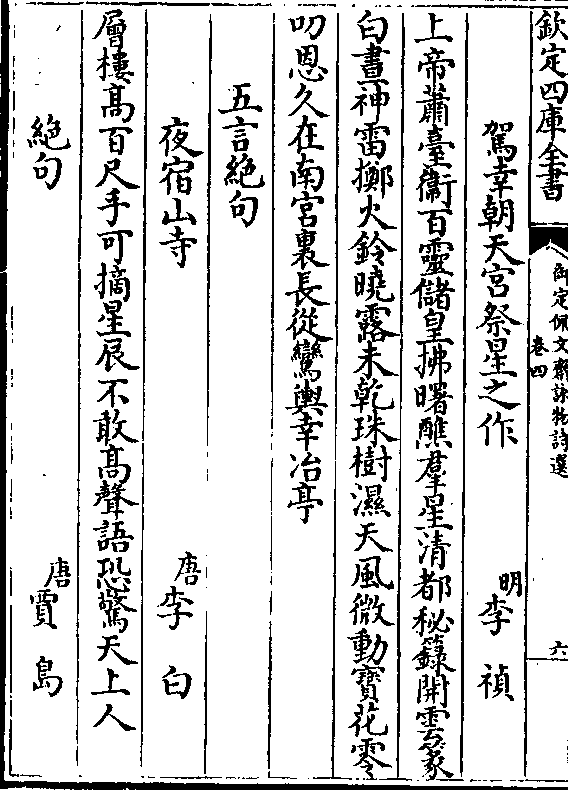 欽定四庫全書
御定佩文齋詠物詩選
卷四
六
駕幸朝天宮祭星之作
明
李禎
上帝蕭臺衞百靈儲皇拂曙醮羣星清都秘籙開雲篆
白晝神雷擲火鈴曉露未乾珠樹濕天風微動寶花零
叨恩久在南宮裏長從鸞輿幸冶亭
五言絶句
夜宿山寺
唐
李白
層樓髙百尺手可摘星辰不敢髙聲語恐驚天上人
絶句
唐
賈島